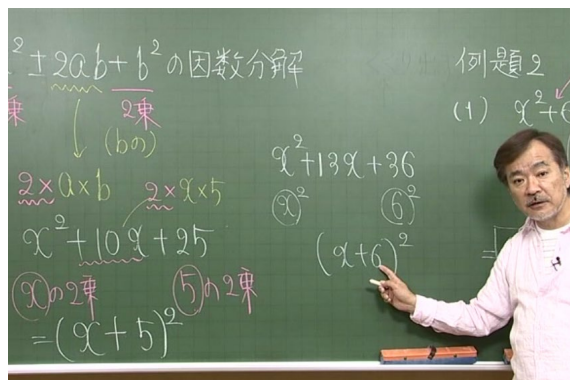 ² ± 2ab + b² の因数分解
乗 2乗
(bの)
2×a×b 2×x×5
x² + 10x + 25
xの2乗 5の2乗
= (x + 5)²
x² + 13x + 36
x² 6²
(x + 6)²
例題2
(1) x² + 6
=